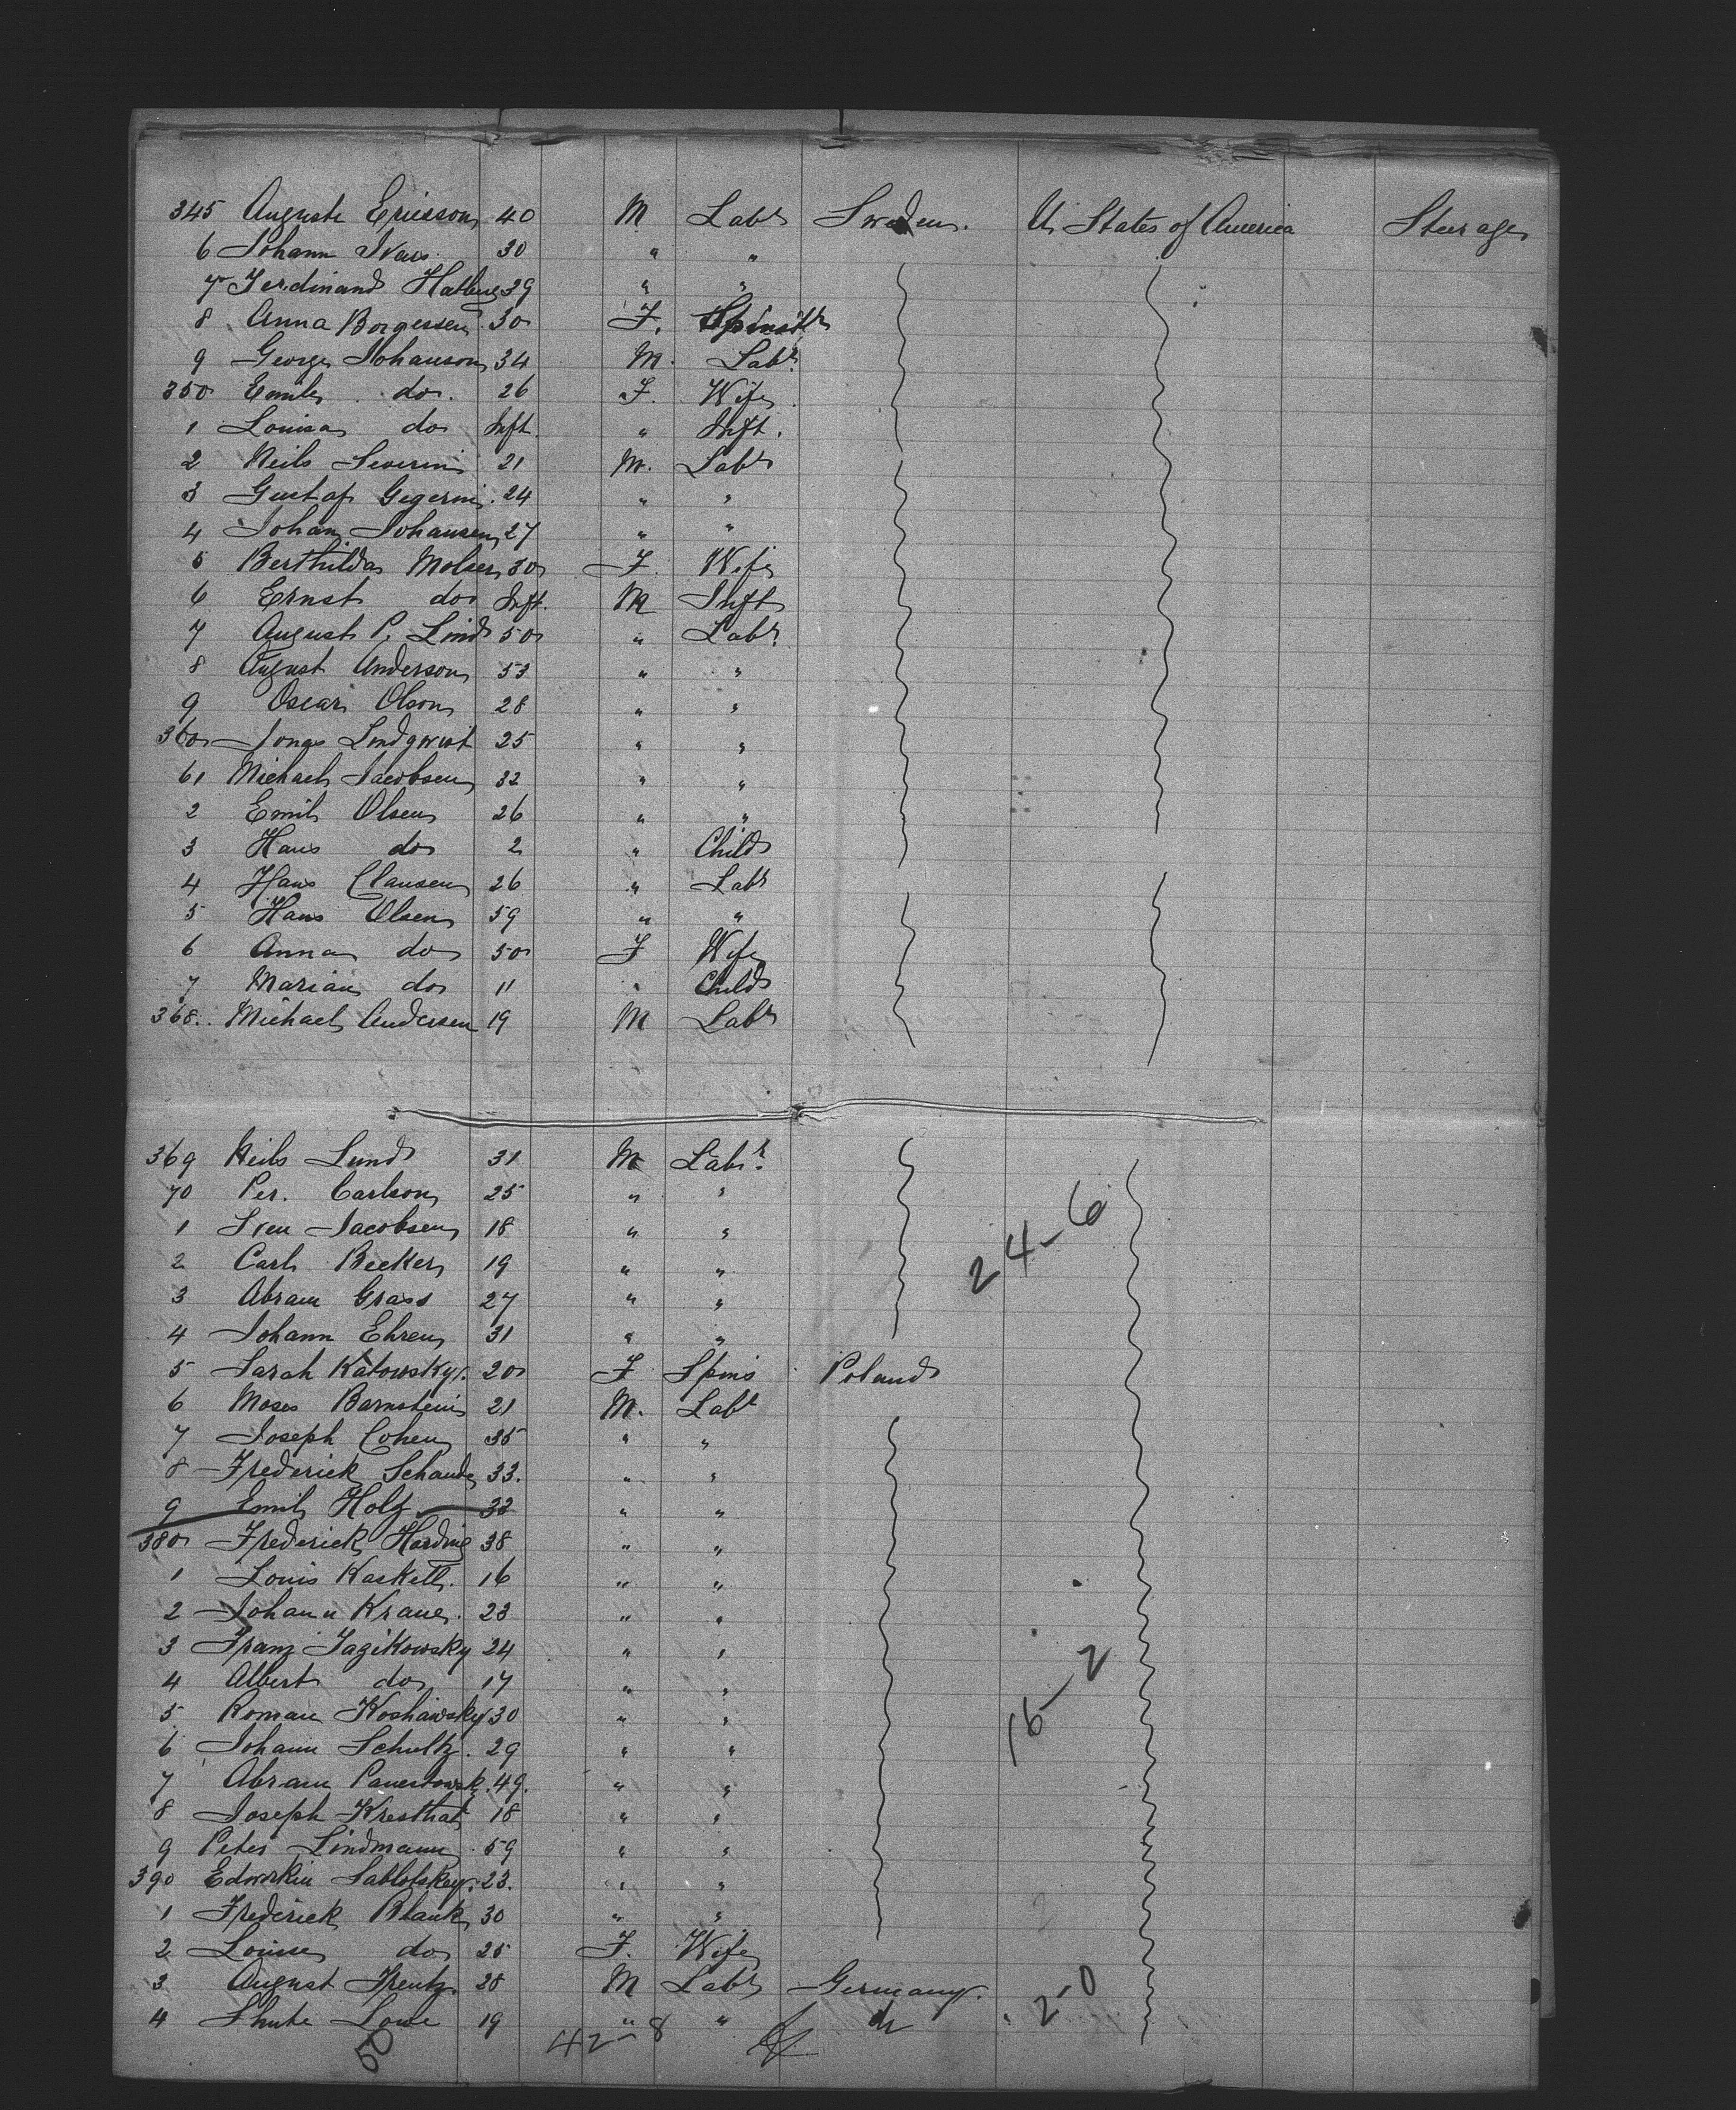 345 Auguste Ericsson 40 M Labr Sweden. U. States of America Steerage
6 Johann Ivers 30 " "
7 Ferdinand 39 " "
8 Anna Borgessen 30 F. Spinstr
9 George Johanson 34 M. Labr.
350 Emily do. 26 F. Wife
1 Louisa do Inft. " Inft.
2 Neils Severin 21 M. Labr
3 Gustaf 24 " "
4 Johan Johansen 27 " "
5 Berthilda Molsen 30 F. Wife
6 Ernst do Inft. M Inft
7 August P. Lind 50 " Labr.
8 August Anderson 53 " "
9 Oscar Olson 28 " "
360 Jonas Lindqwist 25 " "
61 Michael Jacobsen 32 " "
2 Emil Olsen 26 " "
3 Hans do 2 " Child
4 Hans Clausen 26 " Labr
5 Hans Olsen 59 " "
6 Anna do 50 F Wife
7 Marian do 11 " Child
368. Michael Andersen 19 M Labr
369 Neils Lund 31 M Labr.
70 Per. Carlson 25 " "
1 Sven Jacobsen 18 " "
24-6
2 Carl Becker 19 " "
3 Abram Grass 27 " "
4 Johann Ehren 31 " "
5 Sarah Katowsky. 20 F Spins Poland
6 Moses Barnstein 21 M. Labr
7 Joseph Cohen 35 " "
8 Frederick Schaude 33. " "
9 Emil Holz 33 " "
380 Frederick Harding 38 " "
1 Louis Kaskett. 16 " "
2 Johann Krane. 23 " "
3 Franz Jazikowsky 24 " "
4 Albert do 17 " "
16-2
5 Roman Koshawsky 30 " "
6 Johann Schultz. 29 " "
7 Abram 49. " "
8 Joseph Kresthat 18 " "
9 Peter Lindmann 59 " "
390 Edwrkin Sablotskey. 23. " "
1 Frederick Blank 30 " "
2 Louise do 25 F. Wife
3 August Frentz. 28 M Labr Germany.
2-0
4 Shute Lowe 19 " " do
50 42-8